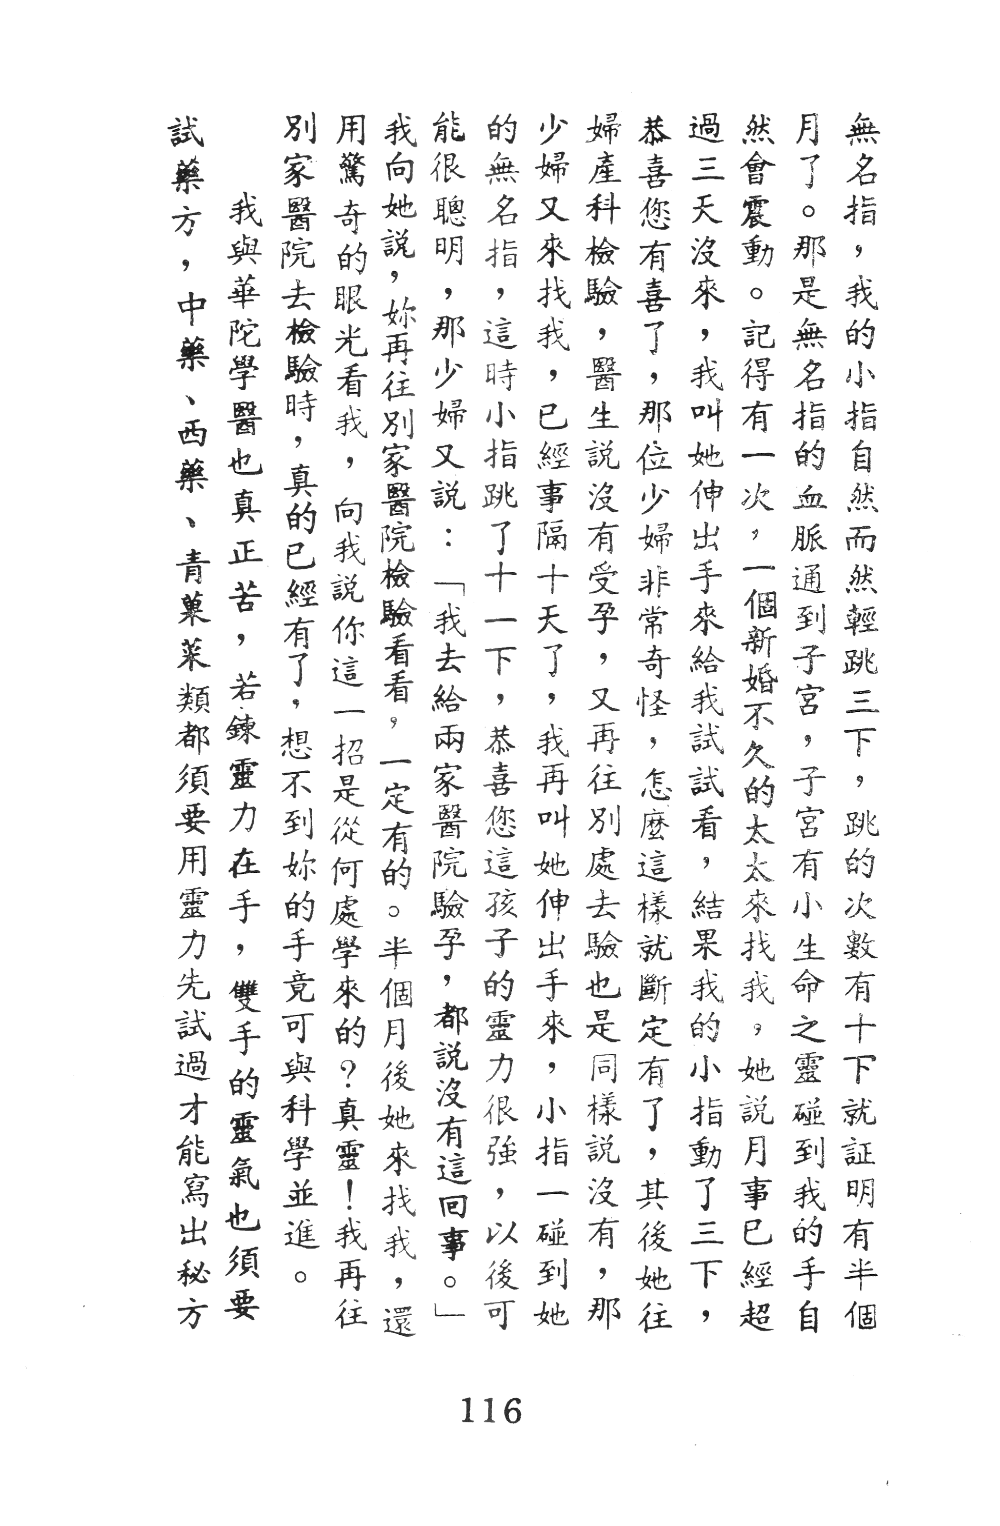 無名指，我的小指自然而然輕跳三下，跳的次數有十下就証明有半個
月了。那是無名指的血脈通到子宮，子宮有小生命之靈碰到我的手自
然會震動。記得有一次，一個新婚不久的太太來找我，她說月事已經超
過三天沒來，我叫她伸出手來給我試試看，結果我的小指動了三下，
恭喜您有喜了，那位少婦非常奇怪，怎麼這樣就斷定有了，其後她往
婦產科檢驗，醫生說沒有受孕，又再往別處去驗也是同樣說沒有，那
少婦又來找我，已經事隔十天了，我再叫她伸出手來，小指一碰到她
的無名指，這時小指跳了十一下，恭喜您這孩子的靈力很強，以後可
能很聰明，那少婦又說：「我去給兩家醫院驗孕，都說沒有這回事。」
我向她說，妳再往別家醫院檢驗看看，一定有的。半個月後她來找我，還
用驚奇的眼光看我，向我說你這一招是從何處學來的？真靈！我再往
別家醫院去檢驗時，真的已經有了，想不到妳的手竟可與科學並進。
我與華陀學醫也真正苦，若鍊靈力在手，雙手的靈氣也須要
試藥方，中藥、西藥、青菓菜類都須要用靈力先試過才能寫出秘方
116